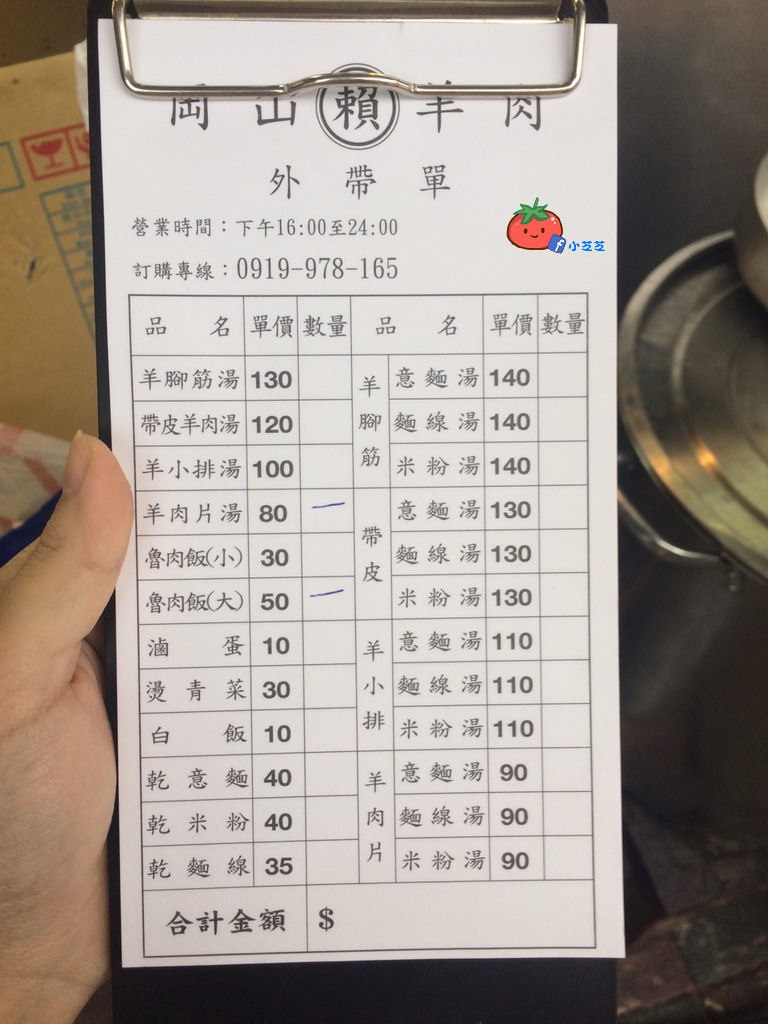 岡山賴羊肉
外帶單
營業時間：下午16:00至24:00
訂購專線：0919-978-165
小芝芝
品名 單價 數量 品名 單價 數量
羊腳筋湯 130 羊腳筋 意麵湯 140
帶皮羊肉湯 120 麵線湯 140
羊小排湯 100 米粉湯 140
羊肉片湯 80 一 帶皮 意麵湯 130
魯肉飯(小) 30 麵線湯 130
魯肉飯(大) 50 一 米粉湯 130
滷蛋 10 羊小排 意麵湯 110
燙青菜 30 麵線湯 110
白飯 10 米粉湯 110
乾意麵 40 羊肉片 意麵湯 90
乾米粉 40 麵線湯 90
乾麵線 35 米粉湯 90
合計金額 $